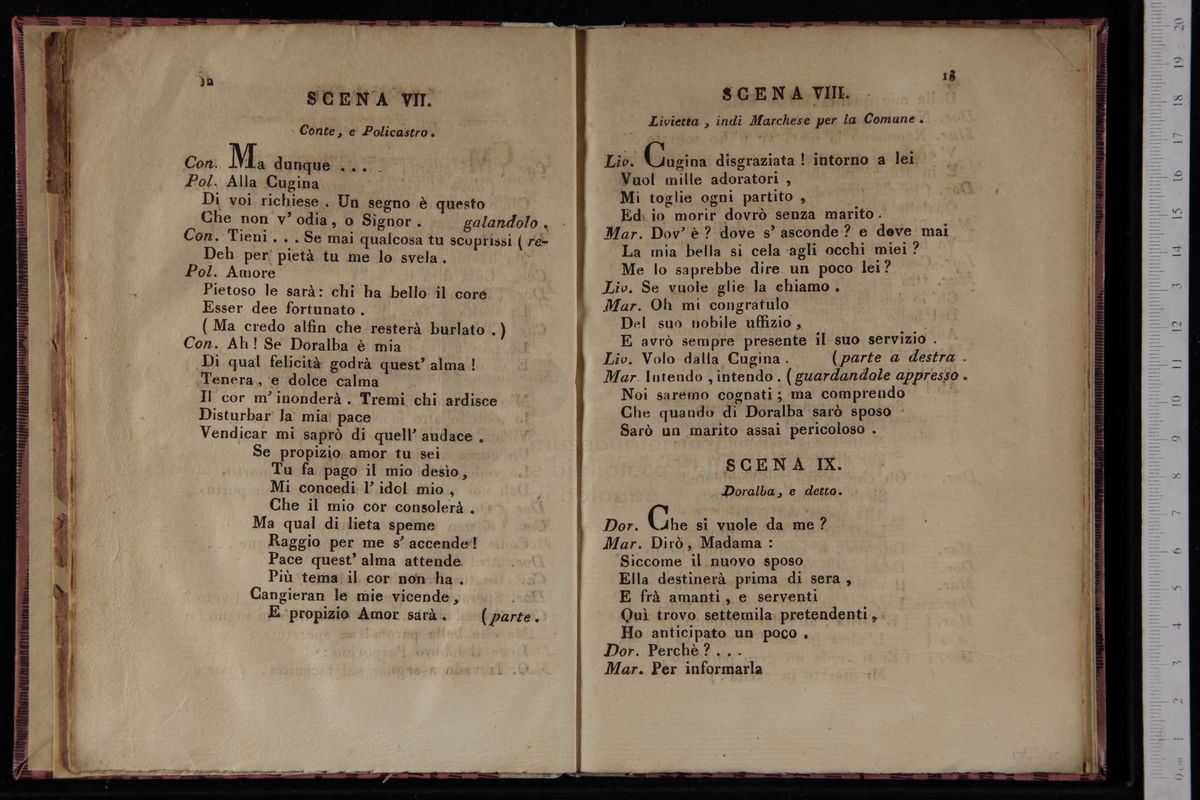 12
SCENA VII.
Conte, e Policastro.
Con. Ma dunque . . .
Pol. Alla Cugina
Di voi richiese. Un segno è questo
Che non v' odia, o Signor. galandolo.
Con. Tieni . . . Se mai qualcosa tu scoprissi (re-
Deh per pietà tu me lo svela.
Pol. Amore
Pietoso le sarà: chi ha bello il core
Esser dee fortunato.
(Ma credo alfin che resterà burlato.)
Con. Ah! Se Doralba è mia
Di qual felicità godrà quest' alma!
Tenera, e dolce calma
Il cor m' inonderà. Tremi chi ardisce
Disturbar la mia pace
Vendicar mi saprò di quell' audace.
Se propizio amor tu sei
Tu fa pago il mio desìo,
Mi concedi l' idol mio,
Che il mio cor consolerà.
Ma qual di lieta speme
Raggio per me s' accende!
Pace quest' alma attende
Più tema il cor non ha.
Cangieran le mie vicende,
E propizio Amor sarà. (parte.
13
SCENA VIII.
Livietta, indi Marchese per la Comune.
Liv. Cugina disgraziata! intorno a lei
Vuol mille adoratori,
Mi toglie ogni partito,
Ed io morir dovrò senza marito.
Mar. Dov' è? dove s' asconde? e dove mai
La mia bella si cela agli occhi miei?
Me lo saprebbe dire un poco lei?
Liv. Se vuole glie la chiamo.
Mar. Oh mi congratulo
Del suo nobile uffizio,
E avrò sempre presente il suo servizio.
Liv. Volo dalla Cugina. (parte a destra.
Mar. Intendo, intendo. (guardandole appresso.
Noi saremo cognati; ma comprendo
Che quando di Doralba sarò sposo
Sarò un marito assai pericoloso.
SCENA IX.
Doralba, e detto.
Dor. Che si vuole da me?
Mar. Dirò, Madama:
Siccome il nuovo sposo
Ella destinerà prima di sera,
E frà amanti, e serventi
Quì trovo settemila pretendenti,
Ho anticipato un poco.
Dor. Perchè? . . .
Mar. Per informarla